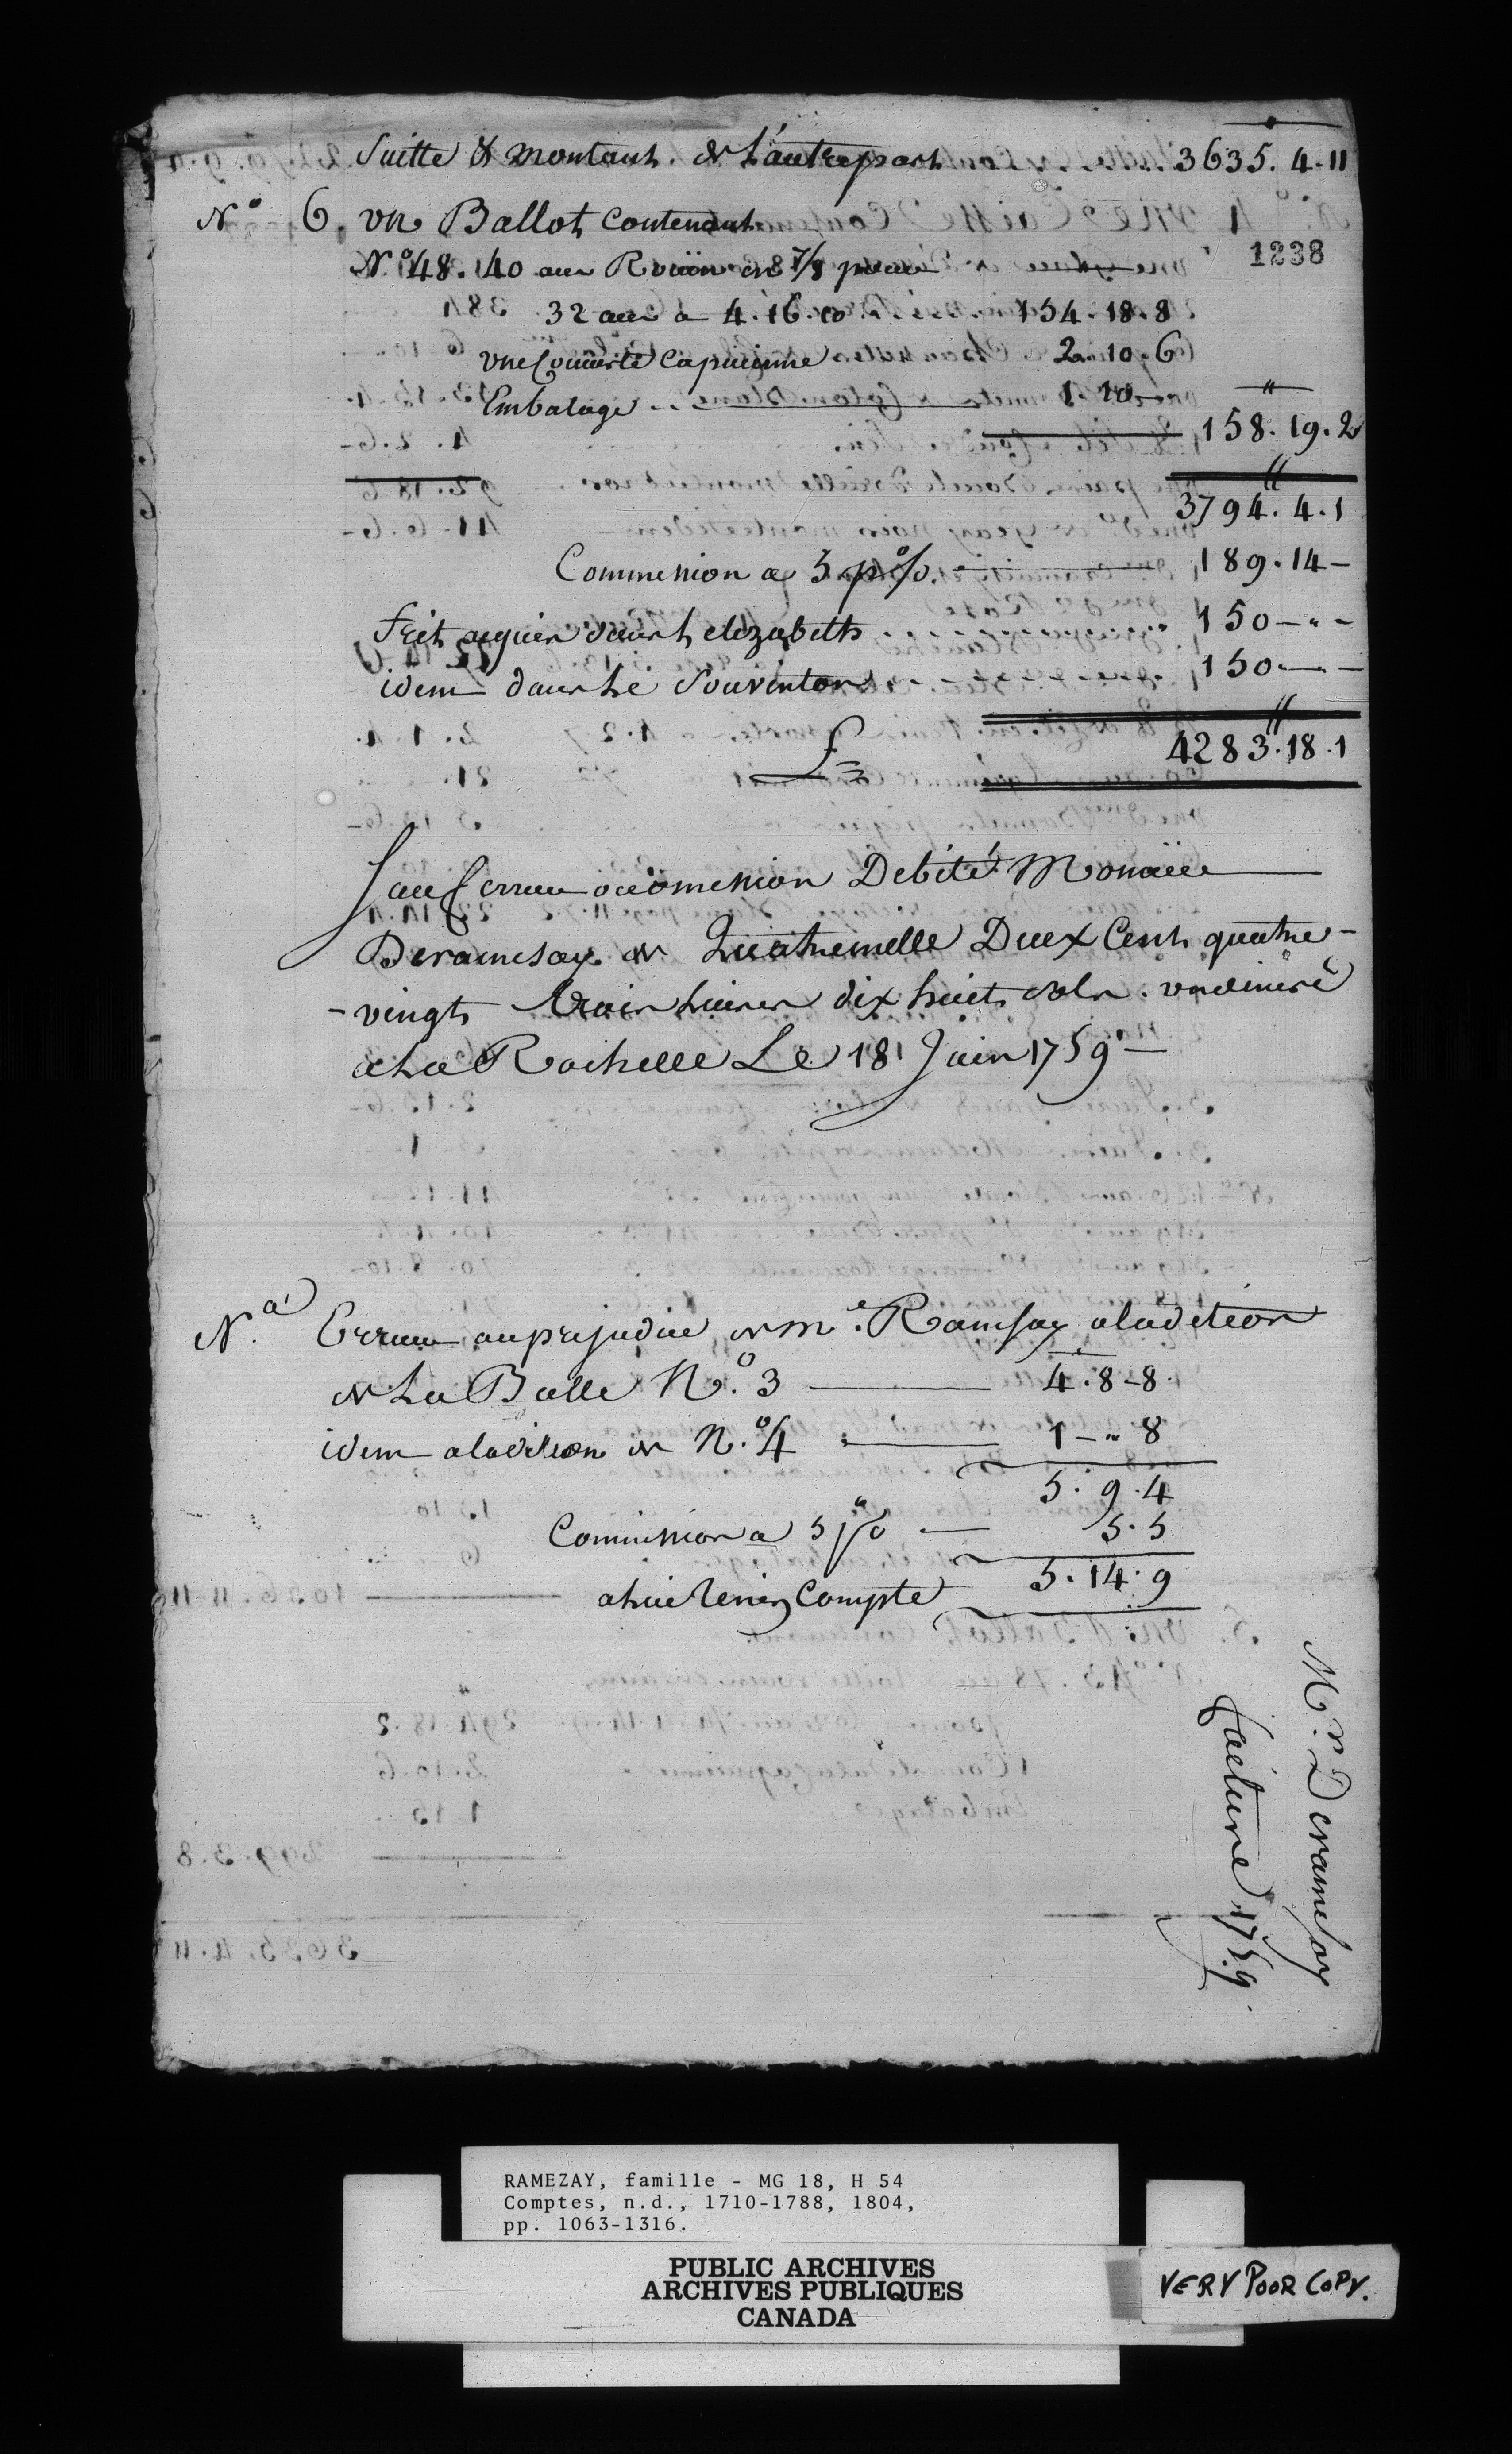 Suitte & montant de L'autrepart 3635. 4. 11
N.° 6. vn Ballot Contenant
1238
N° 48. 40 aun Roüan en 7/8 pour
32 aun a 4. 16. 10 154. 18. 8
vne Couverte Capucinne 2. 10. 6
Embalage 1. 10 -
158. 19. 2
3794. 4. 1
Commession a 5 p%. 189. 14 -
fret a payer dans L'elizabeth 150 - " -
idem dans Le Souvinton 150 - -
£ 4283. 18. 1
Sauf erreur ou omession Debité Monsieur
Deramesay de Quatremille Deux Cent quatre-
-vingt trois livres dix huit sols vn deniers
a La Rochelle Le 18 Juin 1759 -
N.a Erreur au prejudice de m.e Ramsay a ladition
de La Balle N.° 3 4. 8 - 8
idem a ladition de N.° 4 1 - " 8
5. 9. 4
Commission a 5 p% 5. 5
a lui tenir Compte 5. 14. 9
Mr. Deramesay
facture 1759.
RAMEZAY, famille - MG 18, H 54
Comptes, n.d., 1710-1788, 1804,
pp. 1063-1316.
PUBLIC ARCHIVES
ARCHIVES PUBLIQUES
CANADA
VERY POOR COPY.